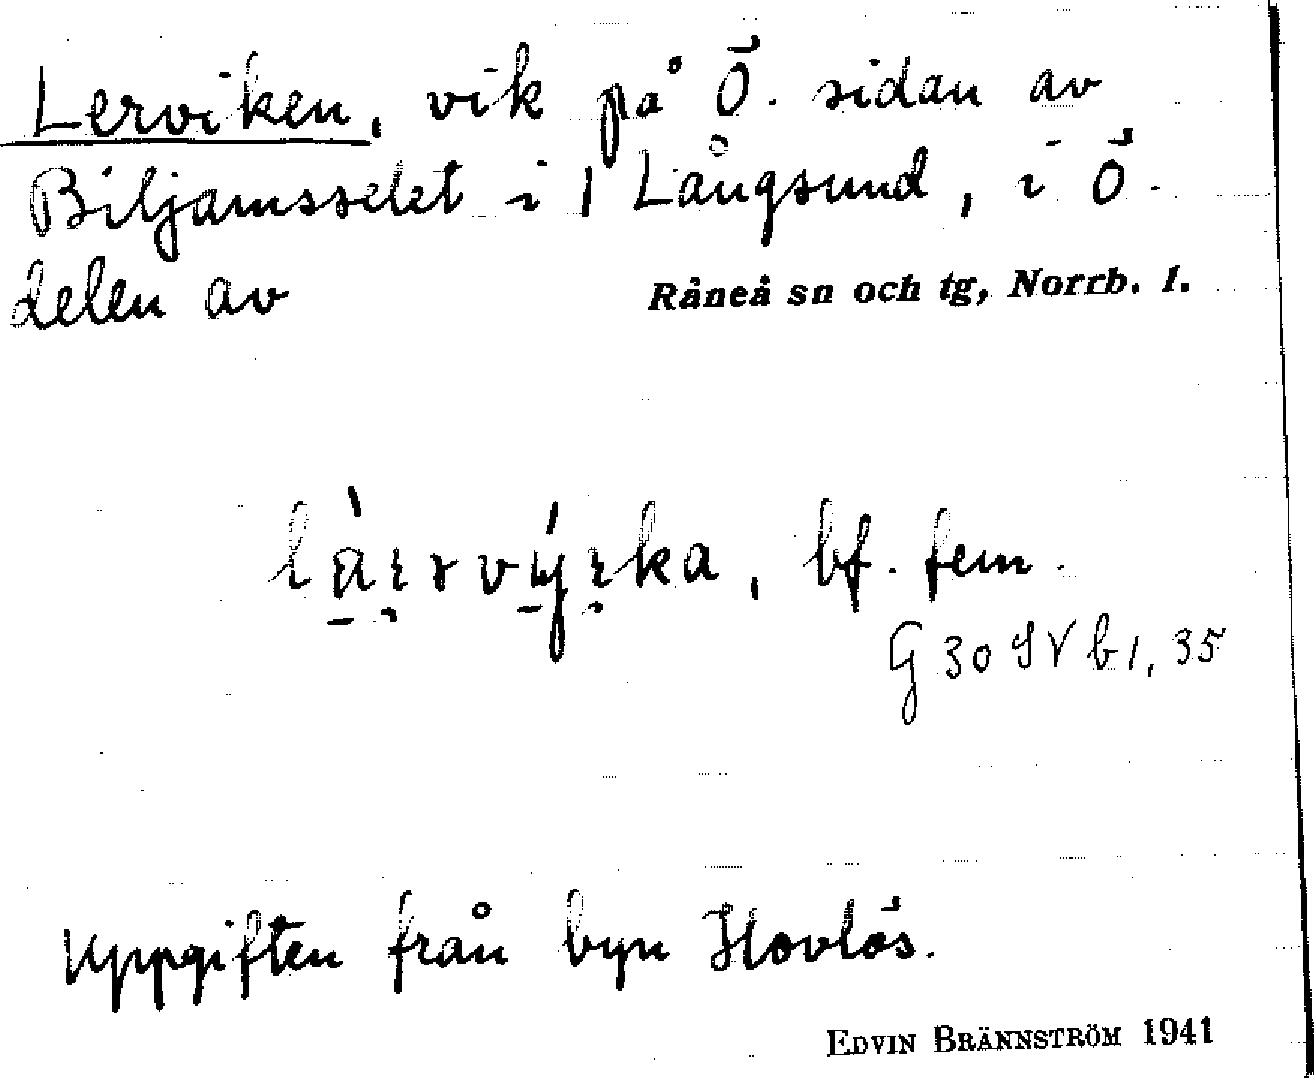 Lerviken, vik på Ö. sidan av
Biljamsselet i l Långsund, i Ö.
delen av Råneå sn och tg, Norrb. l.
bf. fem.
G 30 SV b 1, 35
Uppgiften från byn Hovlös.
EDVIN BRÄNNSTRÖM 1941